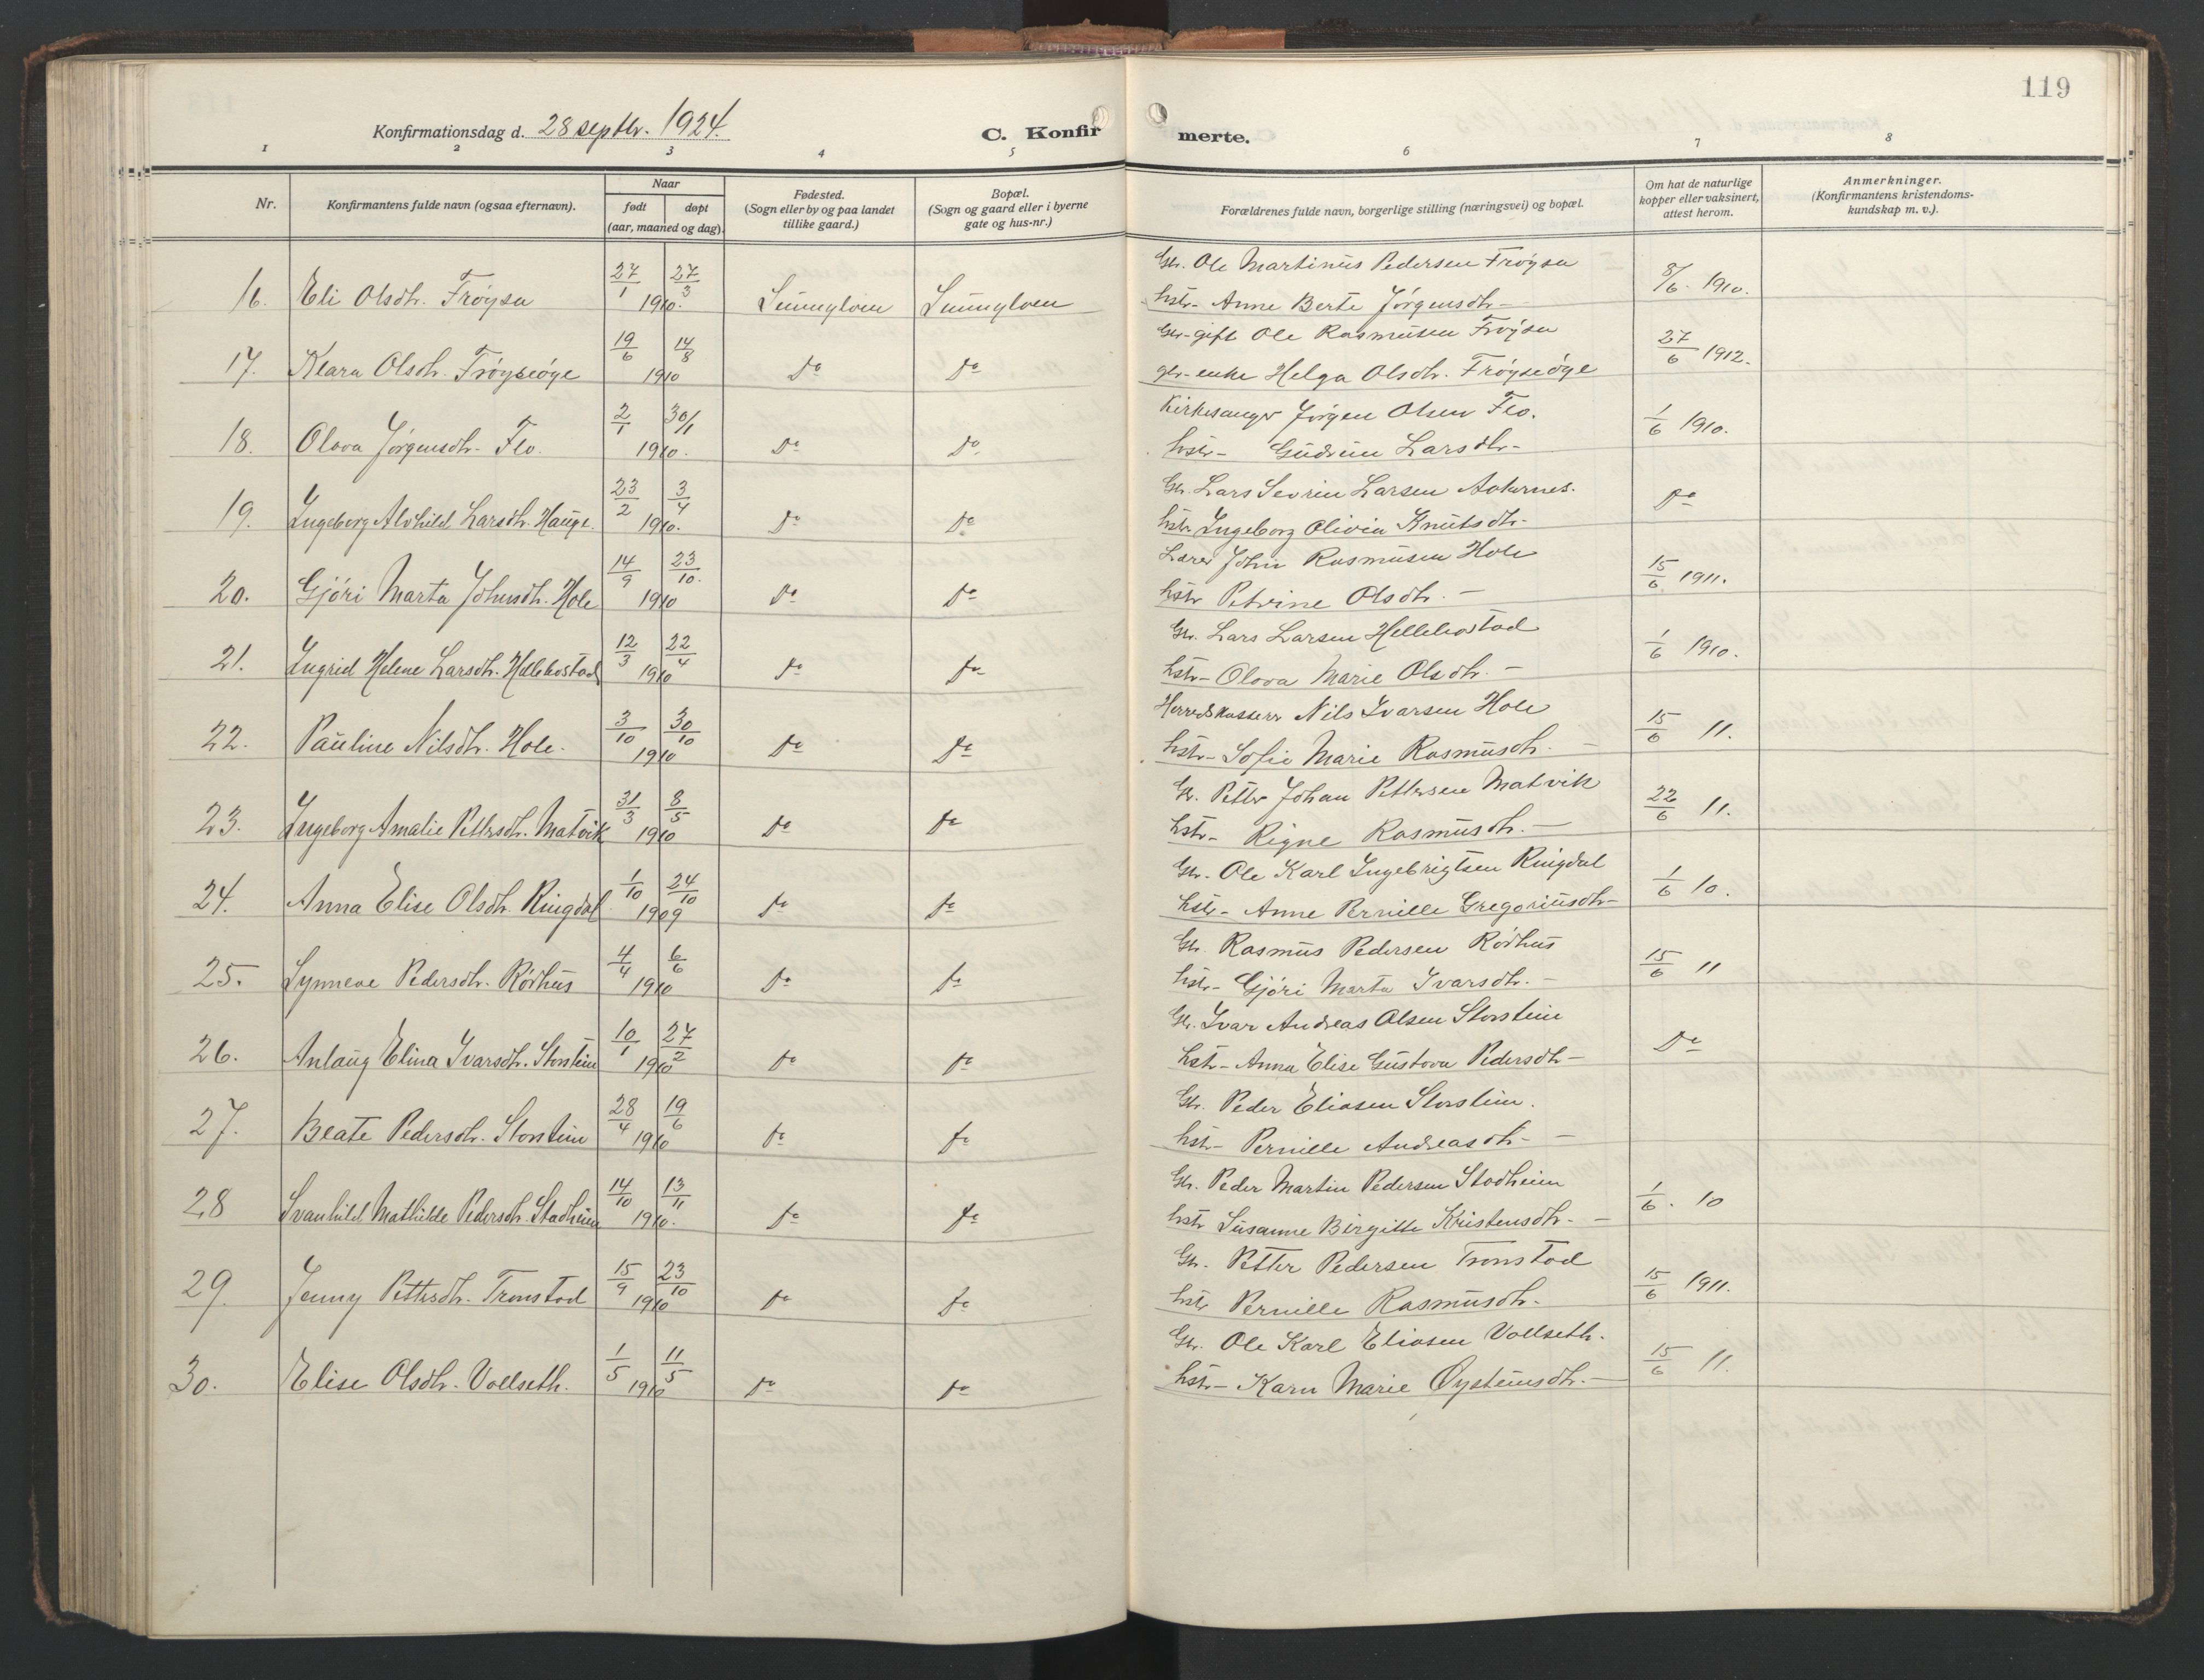 119
Konfirmationsdag d. 28 septbr. 1924.
C. Konfirmerte.
1 2 3 4 5 6 7 8
Nr. | Konfirmantens fulde navn (ogsaa efternavn). | Naar født døpt (aar, maaned og dag). | Fødested. (Sogn eller by og paa landet tillike gaard.) | Bopæl. (Sogn og gaard eller i byerne gate og hus-nr.) | Forældrenes fulde navn, borgerlige stilling (næringsvei) og bopæl. | Om hat de naturlige kopper eller vaksinert, attest herom. | Anmerkninger. (Konfirmantens kristendoms-kundskap m. v.).
Gbr. Ole Martinus Pedersen Frøysa
16. Eli Olsdtr. Frøysa 27/1 27/3 1910. Sunnylven Sunnylven hstr- Anne Berte Jørgensdtr- 8/6. 1910.
Gbr-gift Ole Rasmusen Frøysa
17. Klara Olsdtr. Frøyseøye 19/6 14/8 1910 Do Do gbr-enke Helga Olsdtr. Frøyseøye 27/6 1912.
Kirkesanger Jørgen Olsen Flo.
18. Olova Jørgensdtr- Flo. 2/1 30/1 1910. Do Do hstr- Gudrun Larsdtr- 1/6 1910.
Gbr. Lars Sevrin Larsen Aakernes.
19. Ingeborg Alvhild Larsdtr. Hauge. 23/2 3/4 1910. Do Do hstr Ingeborg Olivia Knutsdtr- Do
Lærer John Rasmusen Hole
20. Gjøri Marta Johnsdtr. Hole 14/9 23/10. 1910 Do Do hstr Petrine Olsdtr. - 15/6 1911.
Gbr. Lars Larsen Hellebostad
21. Ingrid Helene Larsdtr. Hellebostad 12/3 22/4 1910 Do Do hstr- Olova Marie Olsdtr. - 1/6 1910.
Herredskasserer Nils Ivarsen Hole
22. Pauline Nilsdtr. Hole. 3/10 30/10 1910 Do Do hstr- Sofie Marie Rasmusdtr. - 15/6 11.
Gbr. Petter Johan Pettersen Matvik
23. Ingeborg Amalie Pettersdtr. Matvik 31/3 8/5 1910 Do Do hstr- Rigne Rasmusdtr. - 22/6 11.
Gbr. Ole Karl Ingebrigtsen Ringdal
24. Anna Elise Olsdtr. Ringdal 1/10 24/10 1909 Do Do hstr- Anne Pernille Gregoriusdtr- 1/6 10.
Gbr. Rasmus Pedersen Rødhus
25. Synneve Pedersdtr. Rødhus 4/4 6/6 1910 Do Do hstr- Gjøri Marta Ivarsdtr. - 15/6 11
Gbr. Ivar Andreas Olsen Storstein
26. Anlaug Elina Ivarsdtr. Storstein 10/1 27/2 1910 Do Do hstr- Anna Elise Gustova Pedersdtr- Do
Gbr. Peder Eliasen Storstein.
27. Beate Pedersdtr. Storstein 28/4 19/6 1910 Do Do hstr- Pernille Andreasdtr- -
Gbr. Peder Martin Pedersen Stadheim
28 Svanhild Mathilde Pedersdtr. Stadheim 14/10 13/11 1910. Do Do hstr Susanne Birgitte Kristensdtr. - 1/6. 10
Gbr. Petter Pedersen Tronstad
29. Jenny Pettersdtr. Tronstad 15/9 23/10 1910 Do Do hstr Pernille Rasmusdtr. 15/6 1911.
Gbr. Ole Karl Eliasen Vollseth.
30. Elise Olsdtr. Vollseth. 1/5 11/5 1910 Do Do hstr- Karn Marie Øysteinsdtr. - 15/6 11.